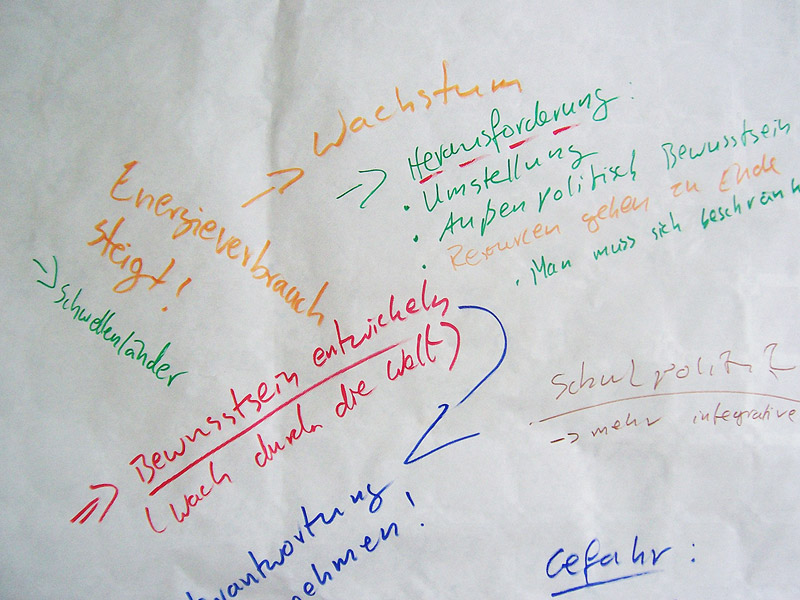 Wachstum
Herausforderung:
· Umstellung
· Außenpolitisch Bewusstsein
· Resourcen gehen zu Ende
· Man muss sich beschränk
Energieverbrauch
steigt!
Schwellenländer
Bewusstsein entwickeln
(wach durch die Welt)
Schulpolitik
-> mehr integrative
rantwortung
nehmen!
Gefahr: